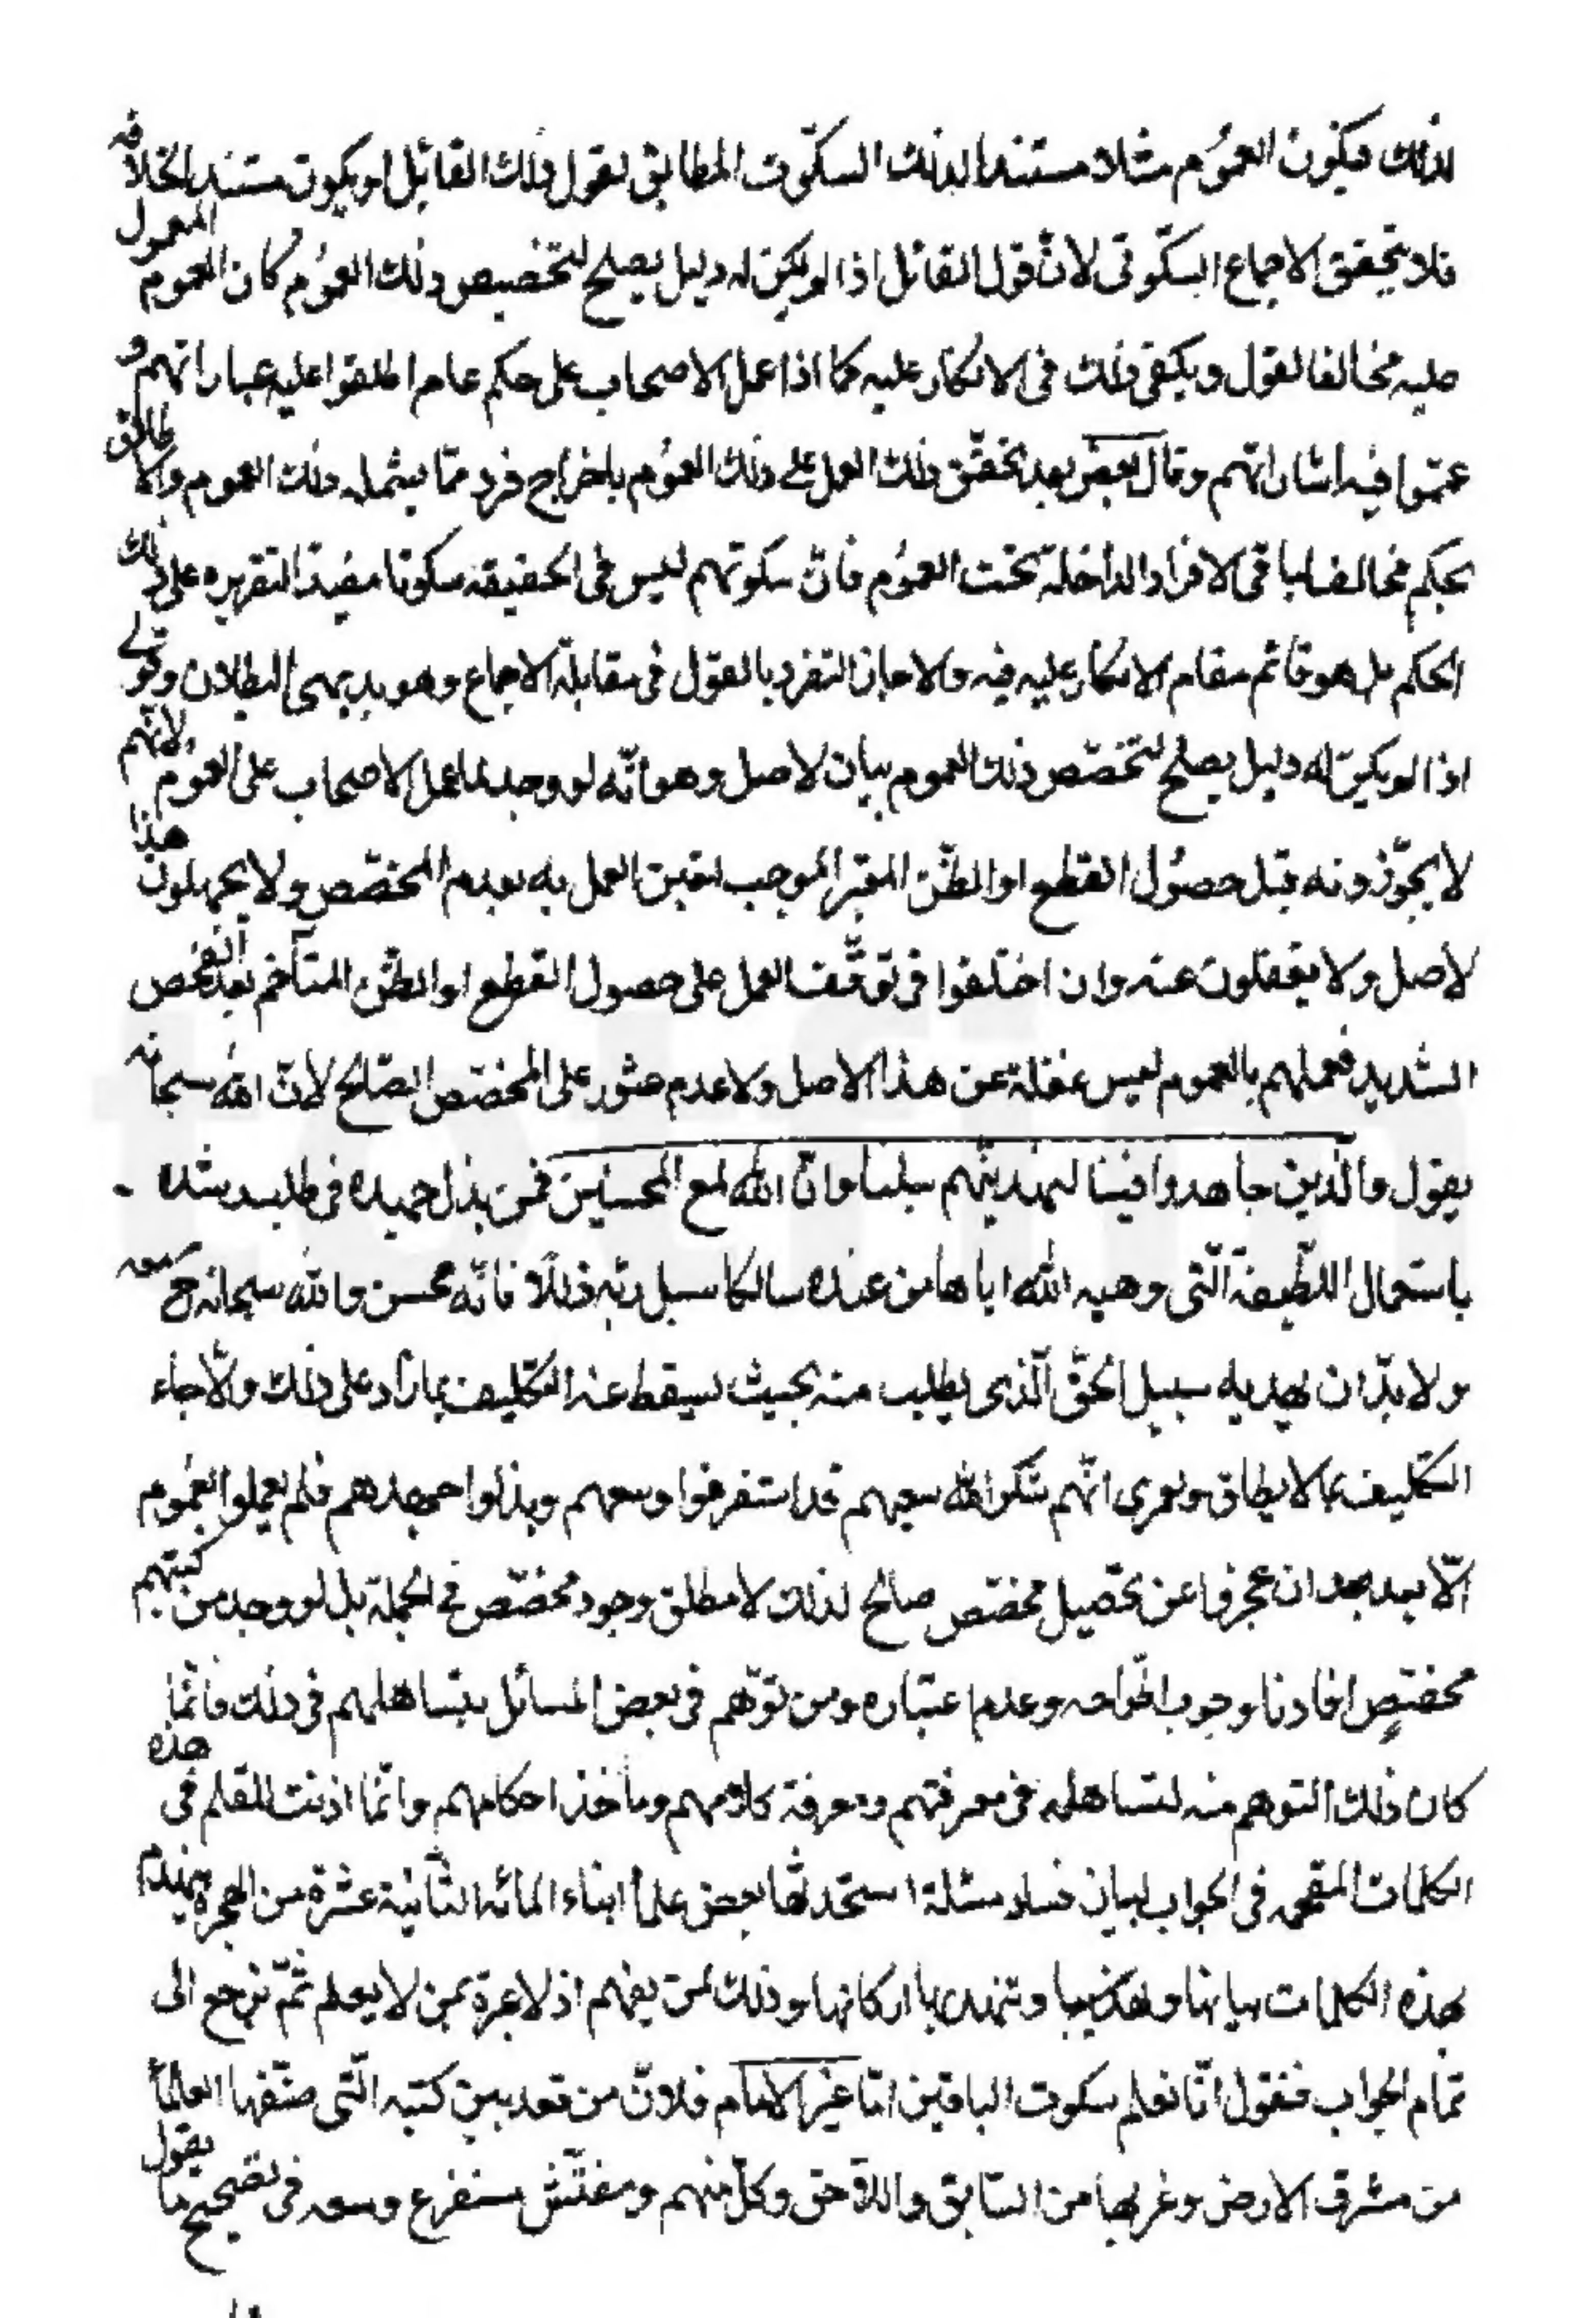 لذلك فيكون العموم مثلا مستندا لذلك السكوت المطابق لقول ذلك القائل او يكون مستند الخلافه
فلا يتحقق الاجماع السكوتى لانّ قول القائل اذا لم يكن له دليل يصلح لتخصيص ذلك العموم كان العموم المعمول
عليه مخالفا لقول ويكفى ذلك فى الانكار عليه كما اذا عمل الاصحاب على حكم عام اطلقوا عليه عباراتهم و
عمّموا فيه اشاراتهم وقال بعض بعد تحقّق ذلك العمل على ذلك العموم باخراج فرد ممّا يشمله ذلك العموم والا
بحكم مخالف لباقى الافراد الداخلة تحت العموم فانّ سكوتهم ليس فى الحقيقة سكوتا مفيدا لتقريره على ذلك
الحكم بل هو قائم مقام الانكار عليه فيه والا جاز التفرد بالقول فى مقابلة الاجماع وهو بديهى البطلان وقولى
اذا لم يكن له دليل يصلح لتخصّص ذلك العموم بيان لاصل وهو انّه لو وجد لما عمل الاصحاب على العموم لانّهم
لا يجوّزونه قبل حصول القطع او الظنّ المعتبر الموجب لتعين العمل به بعدم المخصّص ولا يجهلون هذا
لاصل ولا يغفلون عنه وان اختلفوا فى توقّف العمل على حصول القطع او الظنّ المتآخم بعد الفحص
الشديد فعملهم بالعموم ليس غفلة عن هذا الاصل ولا عدم عثور على المخصّص الصّالح لانّ الله سبحانه
يقول والّذين جاهدوا فينا لنهدينّهم سبلنا وانّ الله لمع المحسنين فمن بذل جهده فى طلب رشده
باستعمال اللّطيفة الّتى وهبه الله اياها من عنده سالكا سبل ربّه ذللا فانّه محسن والله سبحانه ح معه
ولا بدّ ان يهديه سبيل الحقّ الّذى يطلب منه بحيث يسقط عنه التكليف بما زاد على ذلك والّا جاء
التكليف بما لا يطاق ولعمرى انّهم شكر الله سعيهم قد استفرغوا وسعهم وبذلوا جهدهم فلم يعملوا بالعموم
الّا بعد ان عجزوا عن تحصيل مخصّص صالح لذلك لا مطلق وجود مخصّص فى الجملة بل لو وجد من كتبهم
مخصّص افادنا وجوب اطراحه وعدم اعتباره ومن توّهم فى بعض المسائل بتساهلهم فى ذلك فانّما
كان ذلك التوهم منه لتساهله فى معرفتهم ومعرفة كلامهم ومأخذ احكامهم وانّما اذنت للقلم فى هذه
الكلمات فى الجواب لبيان فساد مسئلة استحدثها بعض علماء ابناء المائة الثّانية عشرة من الهجرة
بهذه الكلمات بيانها وذلك لمن يفهم اذ لا عبرة بمن لا يعلم ثمّ نرجع الى
تمام الجواب فنقول انّا نعلم سكوت الباقين امّا غير الامام فلانّ من تعد بين كتبه الّتى صنّفها العلماء
من مشرق الارض وغربها من السّابق واللاحق وكلّ منهم ومفتّش مستفرغ وسعه فى تصحيح ما يقول